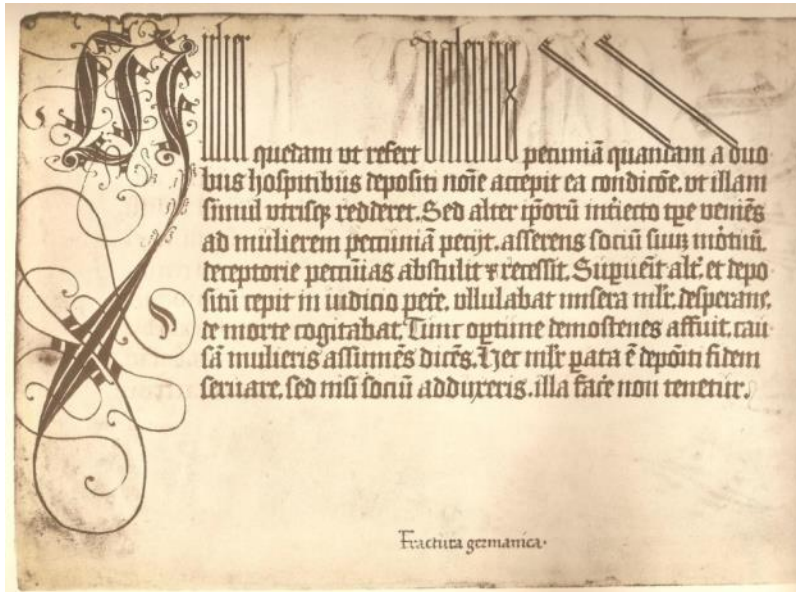 Mulier
quedam ut refert Valerius pecuniã quandam a duo
bus hospitibus depositi noĩe accepit ea condicõe. ut illam
simul utrisq; redderet. Sed alter ip̃orũ int̃iecto tp̃e veniẽs
ad mulierem pecuniã petijt. asserens sociũ suũ mõtuũ.
deceptorie pecũias abstulit & recessit. Supueñit alt̃. et depo
sitũ cepit in iudicio pet̃e. ullulabat misera ml̃r. desperans.
de morte cogitabat. Tunc optime demostenes affuit. cau
sã mulieris assumẽs dicẽs. Hec ml̃r parata ẽ depõiti fidem
seruare. sed nisi sociũ adduxeris. illa fac̃e non tenetur.
Fractura germanica.